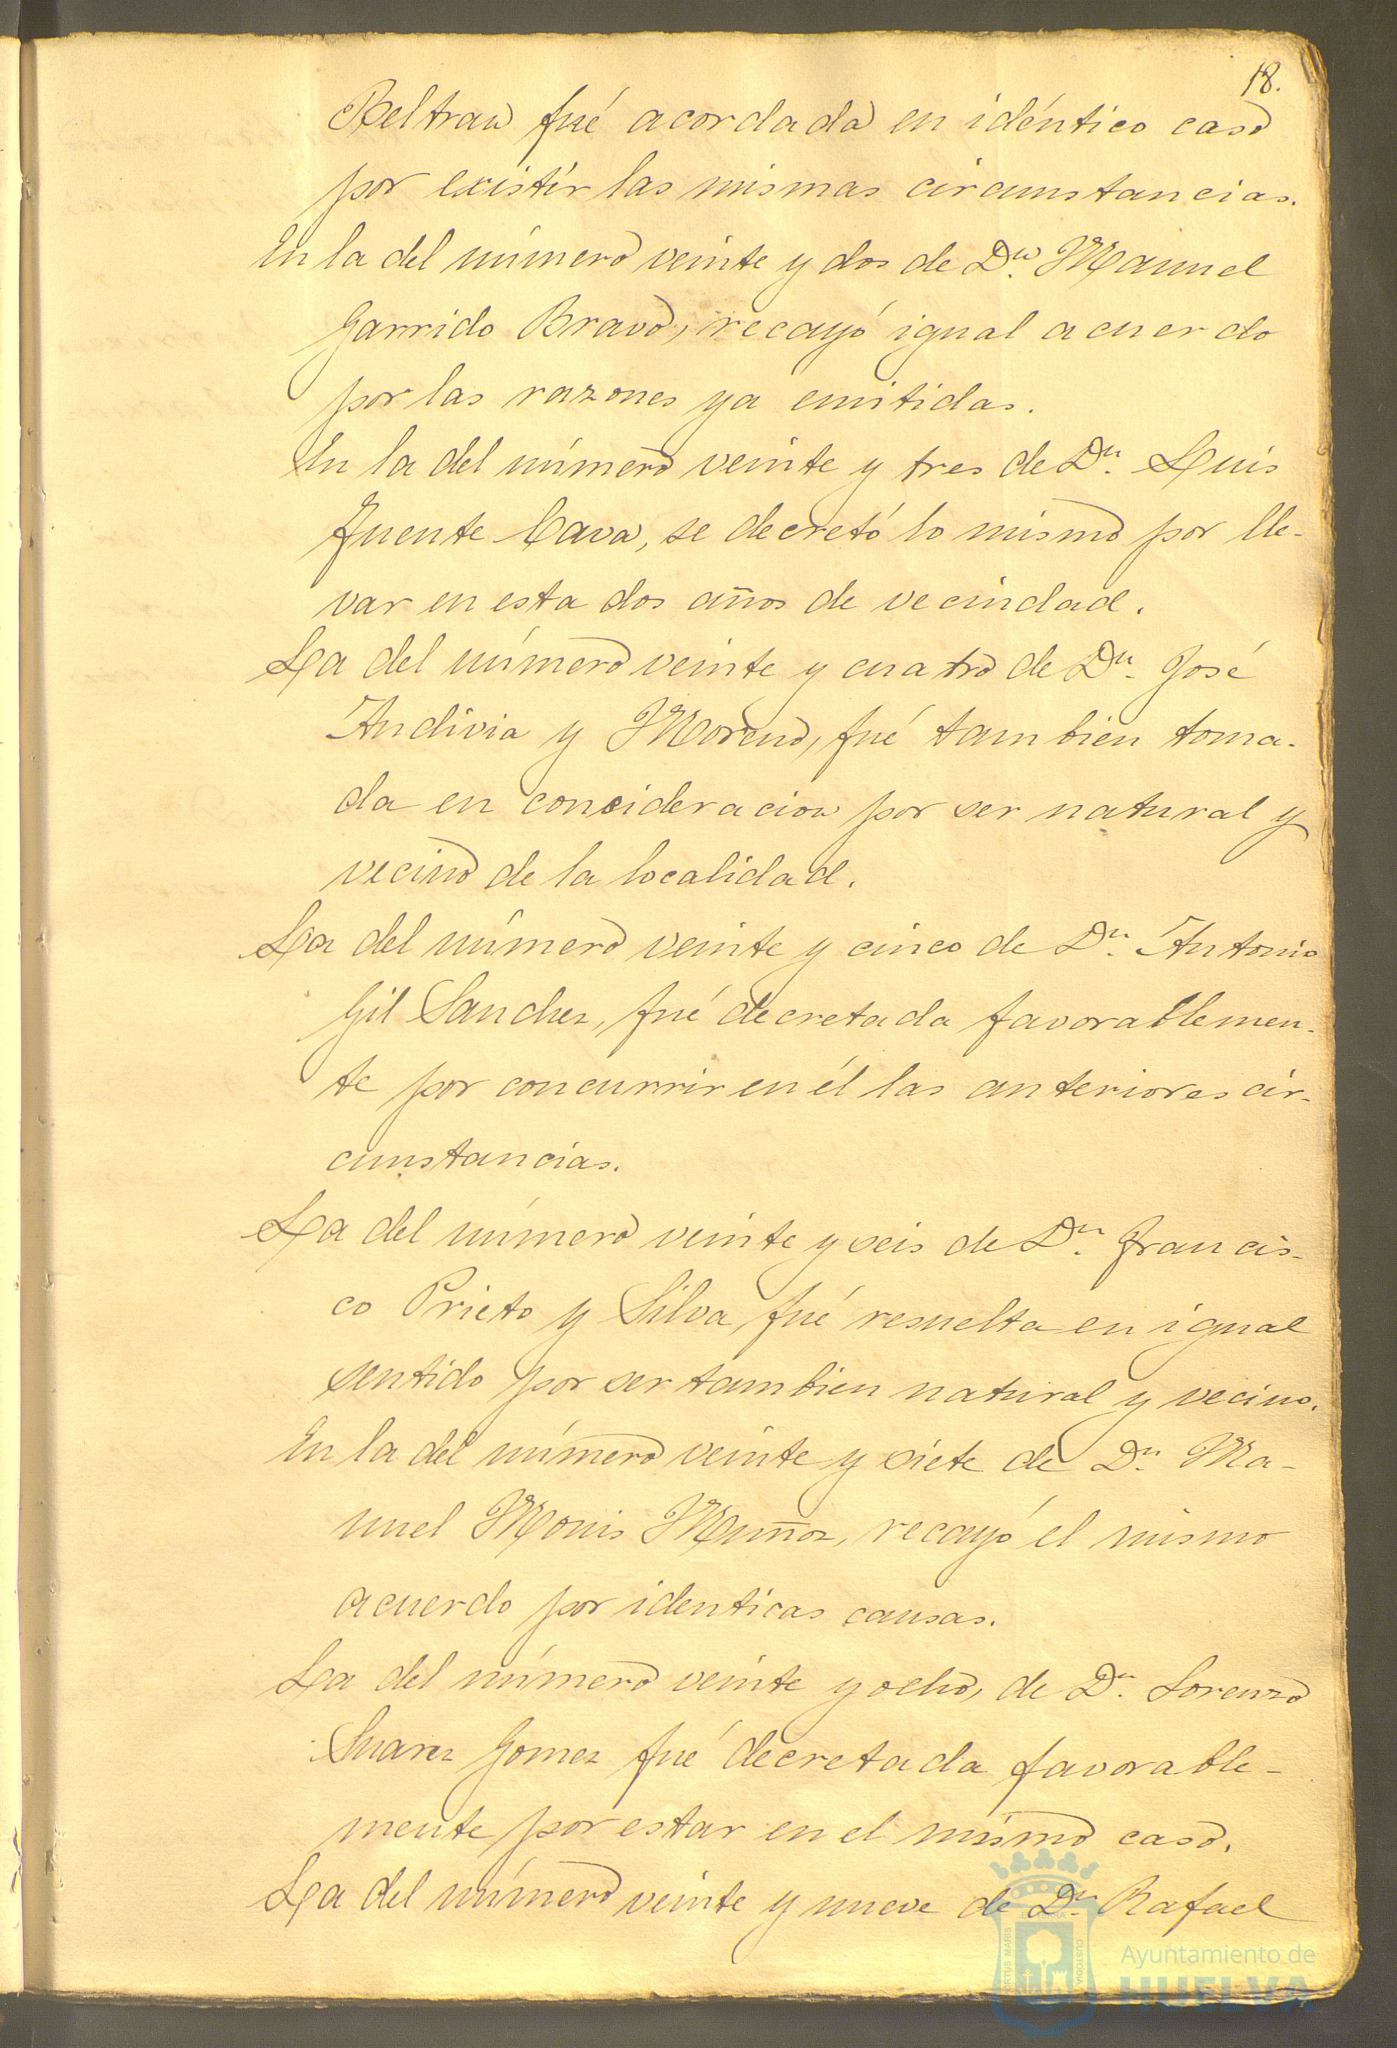 18.
Beltran fué acordada en idéntico caso
por existir las mismas circunstancias.
En la del número veinte y dos de Dn. Manuel
Garrido Bravo, recayó igual acuerdo
por las razones ya emitidas.
En la del número veinte y tres de Dn. Luis
Fuente Cava, se decretó lo mismo por lle-
var en esta dos años de vecindad.
La del número veinte y cuatro de Dn. José
Andivia y Moreno, fué tambien toma-
da en consideracion por ser natural y
vecino de la localidad.
La del número veinte y cinco de Dn. Antonio
Gil Sanchez, fué decretada favorablemen-
te por concurrir en él las anteriores cir-
cunstancias.
La del número veinte y seis de Dn. Francis-
co Prieto y Silva, fué resuelta en igual
sentido por ser tambien natural y vecino.
En la del número veinte y siete de Dn. Ma-
nuel Monis Muñoz, recayó el mismo
acuerdo por identicas causas.
La del número veinte y ocho, de Dn. Lorenzo
Suarez Gomez fué decretada favorable-
mente por estar en el mismo caso.
La del número veinte y nueve de Dn. Rafael
Ayuntamiento de
HUELVA